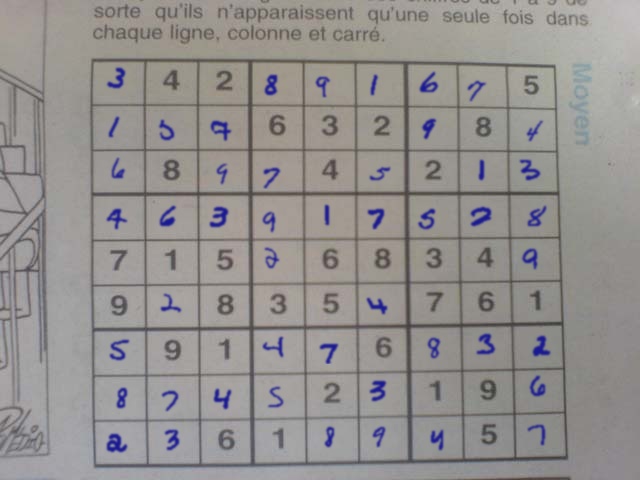 sorte qu'ils n'apparaissent qu'une seule fois dans
chaque ligne, colonne et carré.
Moyen
3 4 2 8 9 1 6 7 5
1 5 7 6 3 2 9 8 4
6 8 9 7 4 5 2 1 3
4 6 3 9 1 7 5 2 8
7 1 5 2 6 8 3 4 9
9 2 8 3 5 4 7 6 1
5 9 1 4 7 6 8 3 2
8 7 4 5 2 3 1 9 6
2 3 6 1 8 9 4 5 7